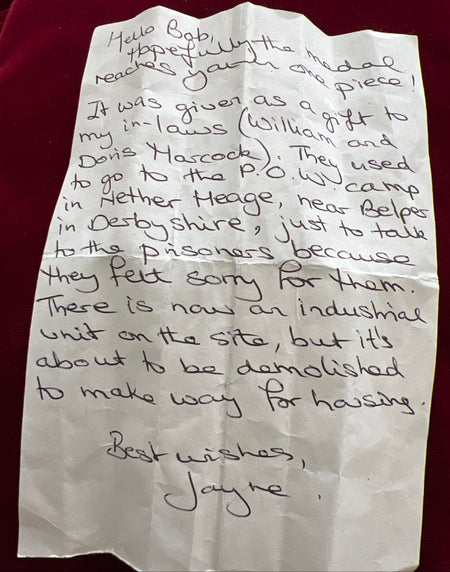 Hello Bob,
Hopefully the medal
reaches you in one piece!
It was given as a gift to
my in-laws (William and
Doris Marcock). They used
to go to the P.O.W. camp
in Nether Heage, near Belper
in Derbyshire, just to talk
to the prisoners because
they felt sorry for them.
There is now an industrial
unit on the site, but it's
about to be demolished
to make way for housing.
Best wishes,
Jayne.